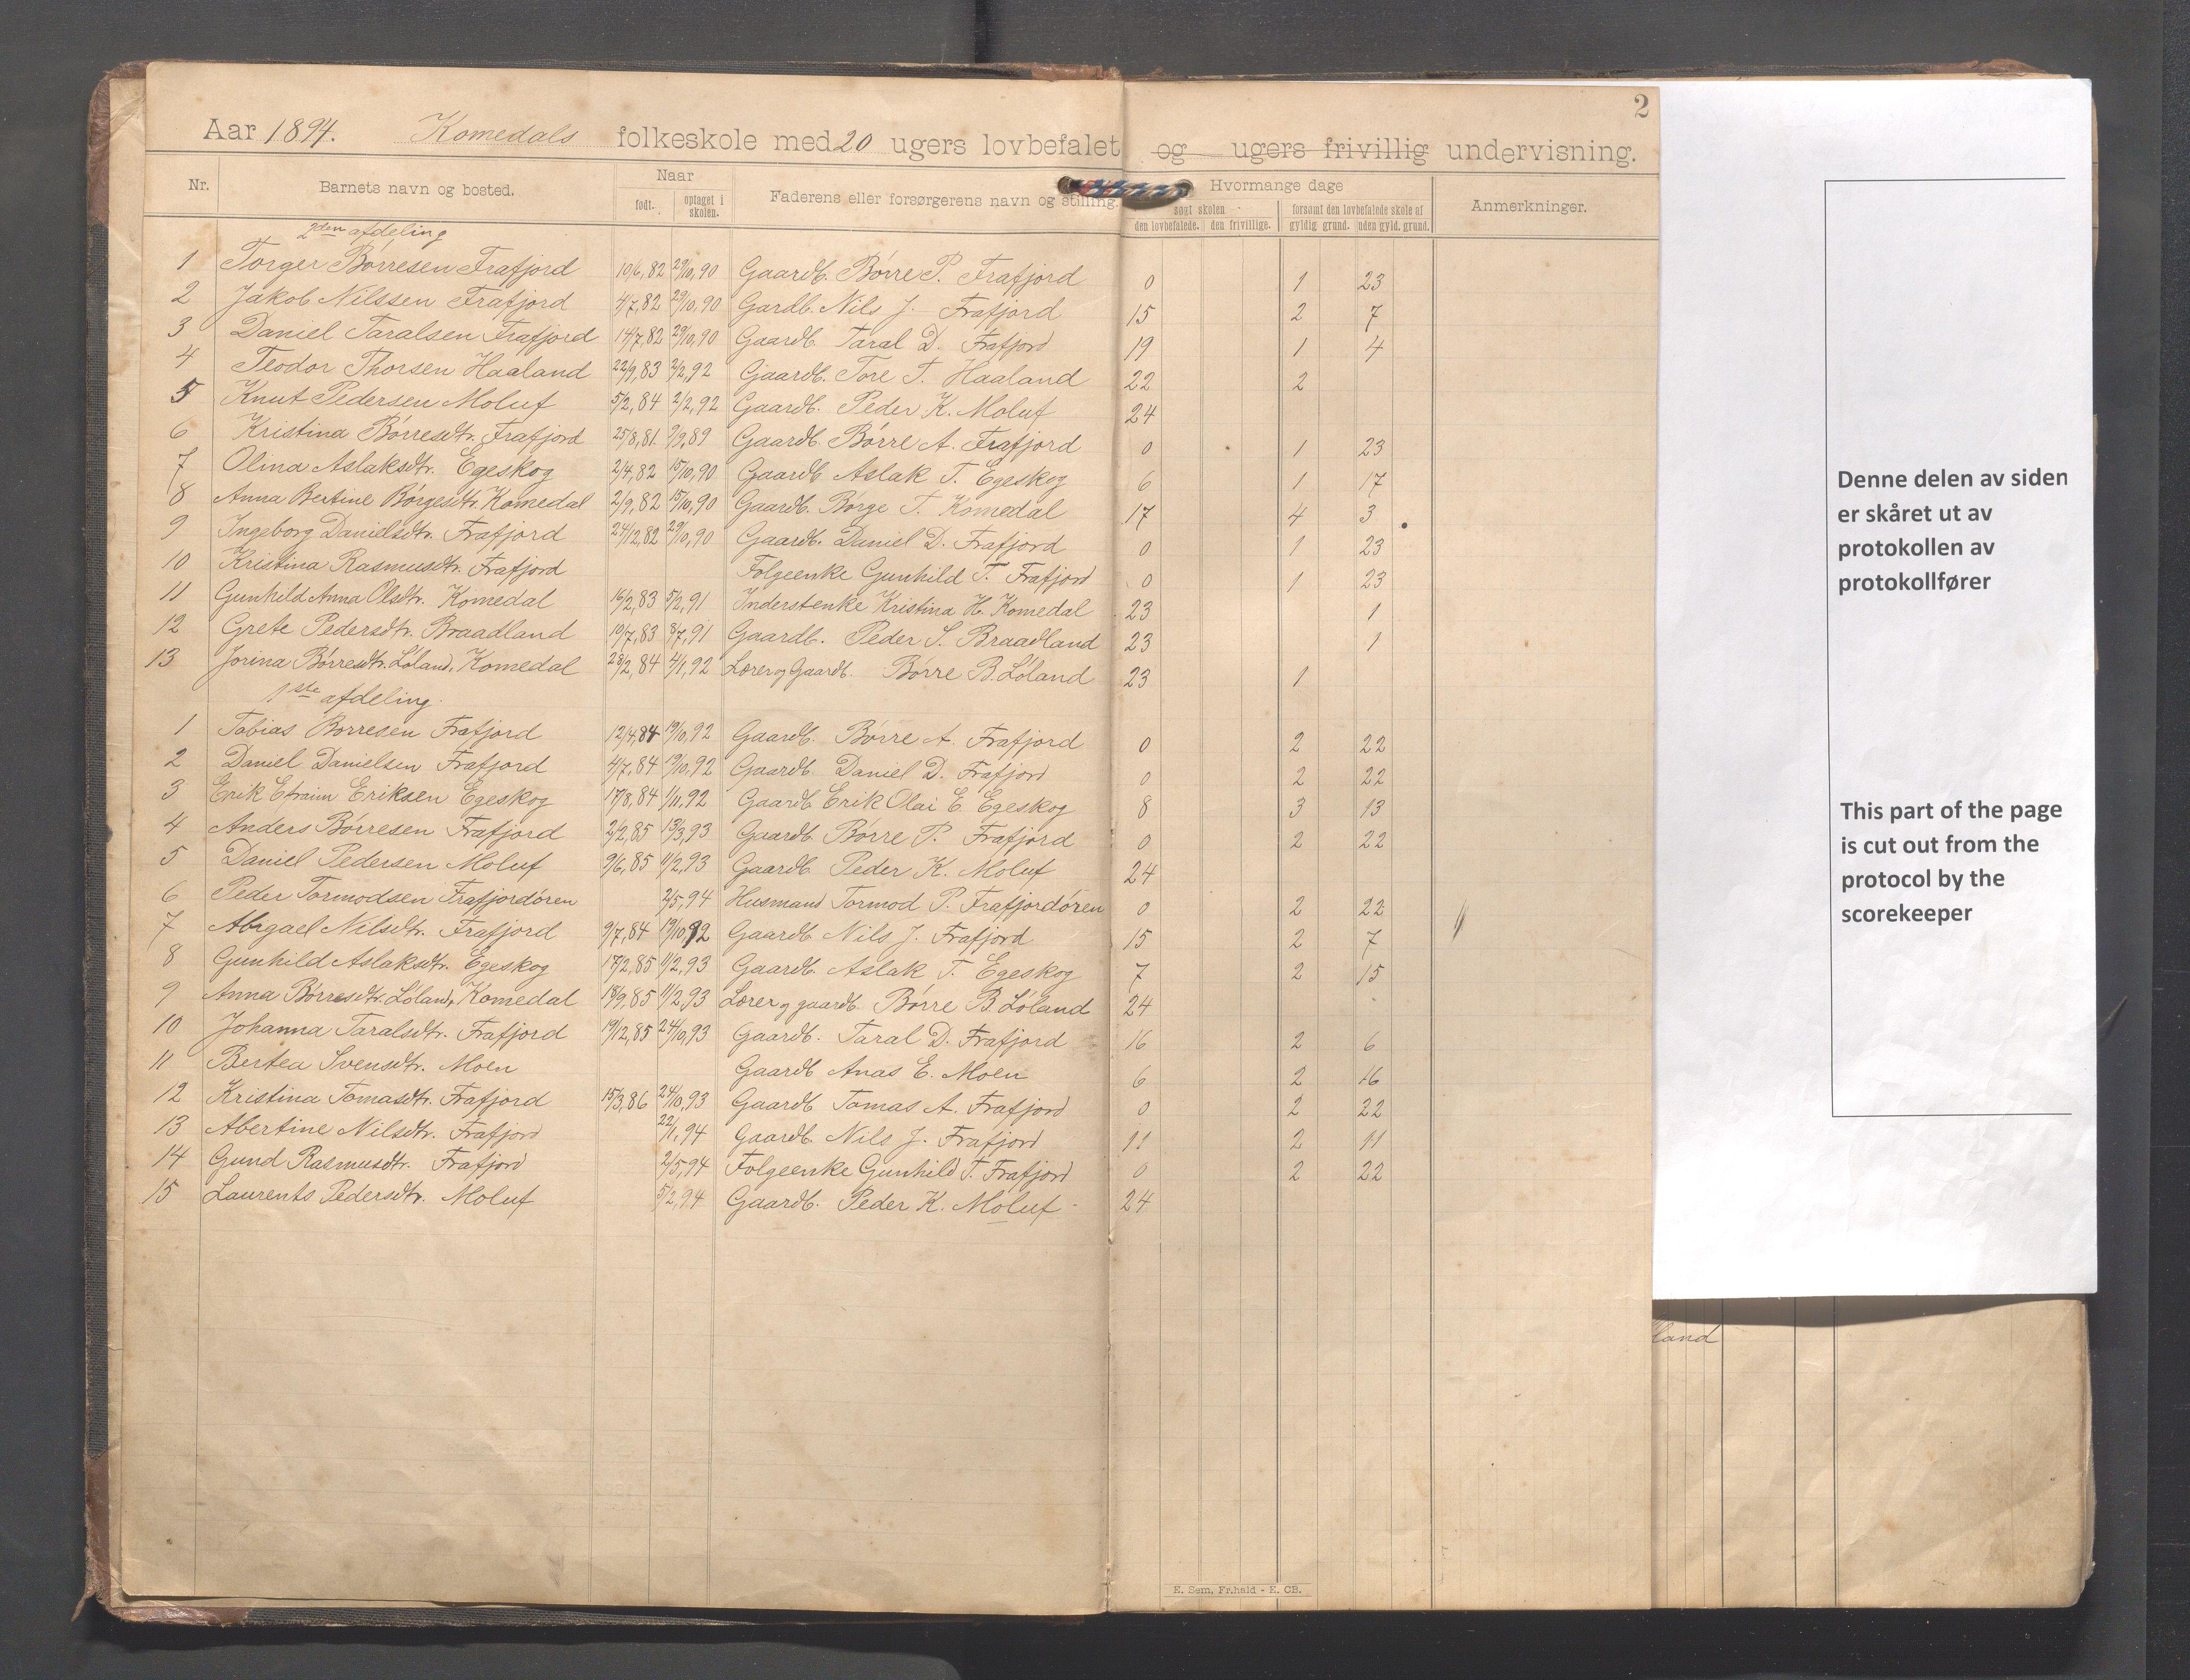 2
Aar 1894. Komedals folkeskole med 20 ugers lovbefalet og ugers frivillig undervisning.
Nr. Barnets navn og bosted. Naar født. optaget i skolen. Faderens eller forsørgerens navn og stilling. Hvormange dage søgt skolen den lovbefalede. den frivillige. forsømt den lovbefalede skole af gyldig grund. uden gyld. grund. Anmerkninger.
2den afdeling
1 Torger Børresen Frafjord 10/6,82 29/10,90 Gaardb. Børre P. Frafjord 0 1 23
2 Jakob Nilssen Frafjord 4/7,82 29/10,90 Gardb. Nils J. Frafjord 15 2 7
3 Daniel Taralsen Frafjord 14/7,82 29/10,90 Gaardb. Taral D. Frafjord 19 1 4
4 Teodor Thorsen Haaland 22/9,83 2/2,92 Gjaardb. Tore T. Haaland 22 2
5 Knut Pedersen Moluf 5/2,84 2/2,92 Gaardb. Peder K. Moluf 24
6 Kristina Børresdtr. Frafjord 25/8,81 9/9,89 Gaardb. Børre A. Frafjord 0 1 23
7 Olina Aslaksdtr. Egeskog 2/4,82 15/10,90 Gaardb Aslak T. Egeskog 6 1 17
8 Anna Bertine Børgesdtr. Komedal 2/9,82 15/10,90 Gaardb. Børge T. Komedal 17 4 3
9 Ingeborg Danielsdtr. Frafjord 24/12,82 29/10,90 Gaardb. Daniel D. Frafjord 0 1 23
10 Kristina Rasmusdtr. Frafjord Folgeenke Gunhild T. Frafjord 0 1 23
11 Gunhild Anna Olsdtr. Komedal 16/2,83 5/2,91 Inderstenke Kristina H. Komedal 23 1
12 Grete Pedersdtr. Braadland 10/7,83 8/7,91 Gaardb. Peder S. Braadland 23 1
13 Jorina Børresdtr. Løland, Komedal 28/2,84 4/1,92 Lærer og Gaardb. Børre B. Løland 23 1
1ste afdeling
1 Tobias Børresen Frafjord 12/4,84 19/10,92 Gaardb. Børre A. Frafjord 0 2 22
2 Daniel Danielsen Frafjord 4/7,84 19/10,92 Gaardb Daniel D. Frafjord 0 2 22
3 Erik Efraim Eriksen Egeskog 17/8,84 1/11,92 Gaardb Erik Olai E. Egeskog 8 3 13
4 Anders Børresen Frafjord 2/2,85 13/3,93 Gaardb. Børre P. Frafjord 0 2 22
5 Daniel Pedersen Moluf 9/6,85 11/2,93 Gaardb Peder K. Moluf 24
6 Peder Tormodsen Frafjordøren 2/5,94 Husmand Tormod P. Frafjordøren 0 2 22
7 Abigael Nilsdtr. Frafjord 9/7,84 19/10,92 Gaardb Nils J. Frafjord 15 2 7
8 Gunhild Aslaksdtr. Egeskog 17/2,85 11/2,93 Gaardb. Aslak T. Egeskog 7 2 15
9 Anna Børresdtr. Løland, Komedal 18/9,85 11/2,93 Lærer og gaardb. Børre B. Løland 24
10 Johanna Taralsdtr. Frafjord 19/12,85 24/10,93 Gaardb. Taral D. Frafjord 16 2 6
11 Bertea Svensdtr. Moen Gaardb Anas E. Moen 6 2 16
12 Kristina Tomasdtr. Frafjord 15/3,86 24/10,93 Gaardb Tomas A. Frafjord 0 2 22
13 Abertine Nilsdtr. Frafjord 22/1,94 Gaardb. Nils J. Frafjord 11 2 11
14 Gund Rasmusdtr. Frafjord 2/5,94 Folgeenke Gunhild T. Frafjord 0 2 22
15 Laurents Pedersdtr. Moluf 5/2,94 Gaardb. Peder K. Moluf 24
E. Sem, Fr.hald - E. CB.
Denne delen av siden
er skåret ut av
protokollen av
protokollfører
This part of the page
is cut out from the
protocol by the
scorekeeper
land